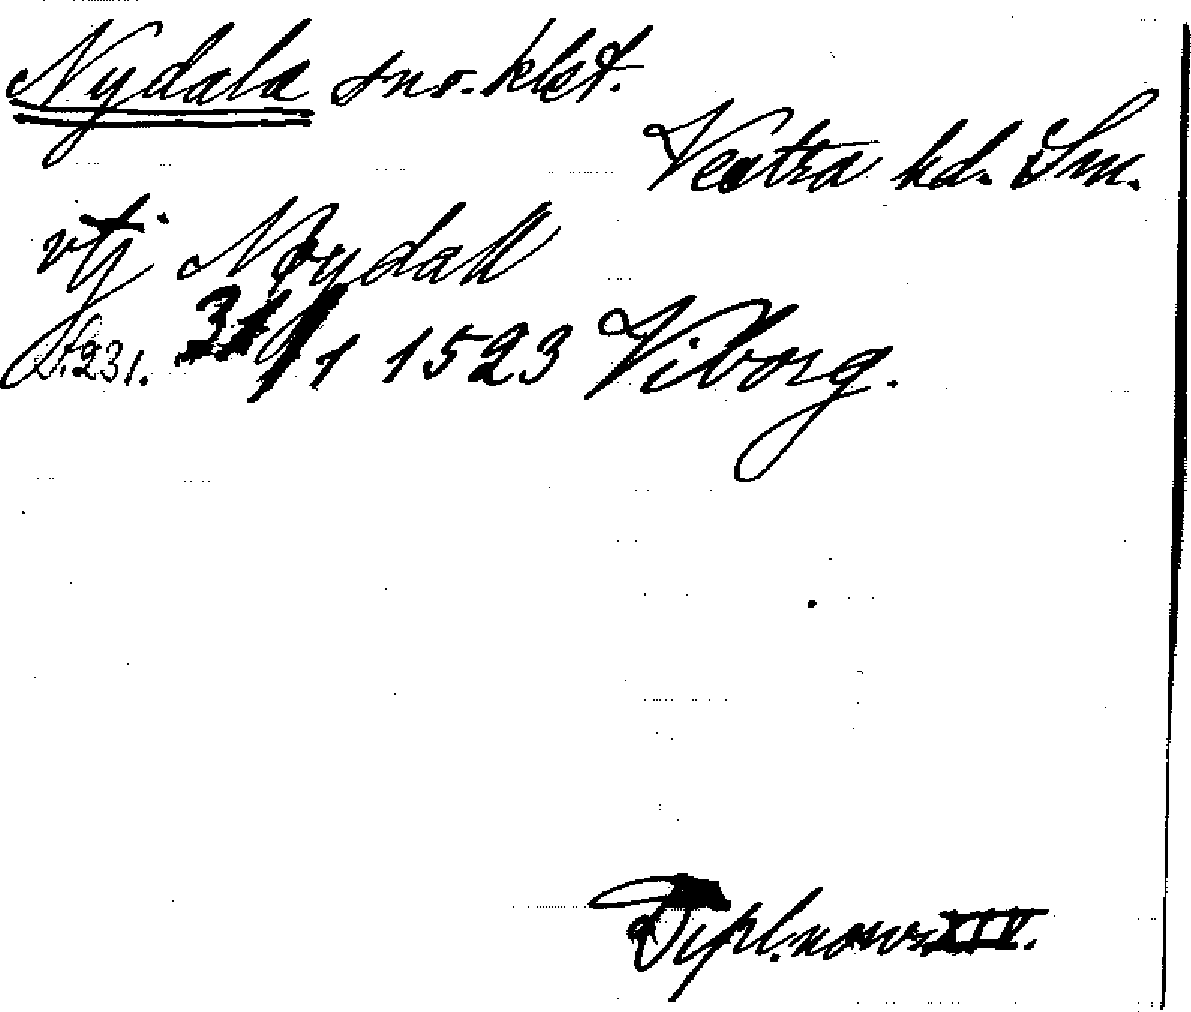 Nydala sn o. klst.
Vestra hd. Sm.
vtj Nydall
S.231. 31/1 1523 Viborg.
Dipl. norv. XIV.